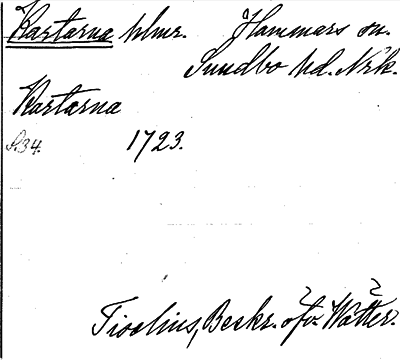 Kartarna hlmr. Hammars sn.
Sundbo hd. Nrk.
Kartarna
S. 34. 1723.
Tiselius, Beskr. öfv. Wätter.